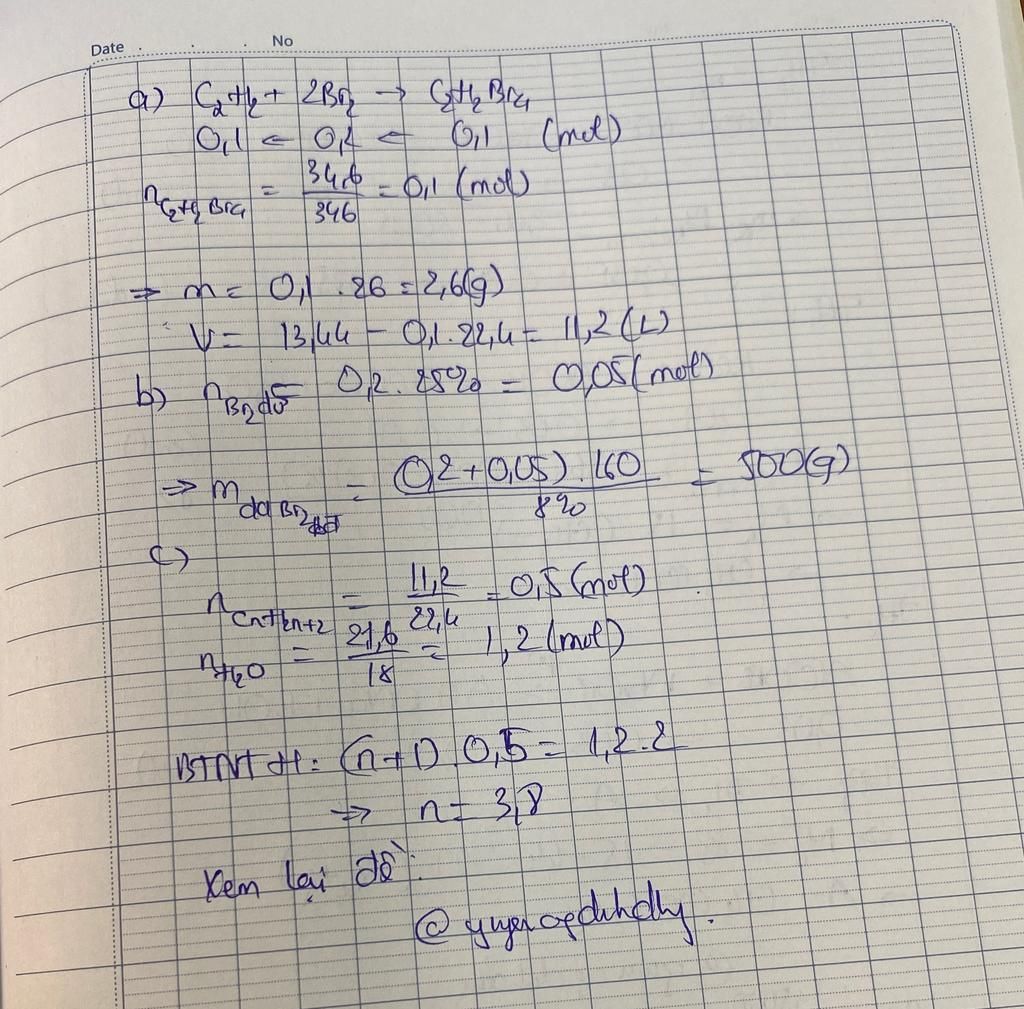 Date . . . No
a) C₂H₂ + 2Br₂ → C₂H₂Br₄
0,1 ← 0,2 ← 0,1 (mol)
nC₂H₂Br₄ = 34,6/346 = 0,1 (mol)
⇒ m = 0,1 . 26 = 2,6(g)
V = 13,44 - 0,1.22,4 = 11,2 (L)
b) nBr₂ dư = 0,2 . 25% = 0,05 (mol)
⇒ m dd Br₂ = (0,2 + 0,05) . 160 / 8% = 500(g)
c)
nCnH2n+2 = 11,2/22,4 = 0,5 (mol)
nH₂O = 21,6/18 = 1,2 (mol)
BTNT H: (n+1) . 0,5 = 1,2 . 2
⇒ n = 3,8
Xem lại đề.